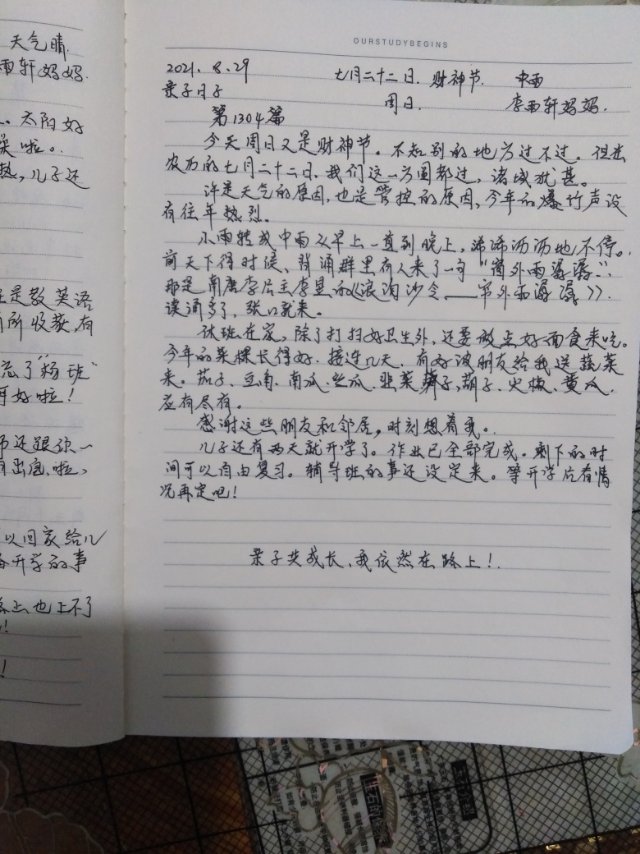 天气晴.
雨轩妈妈.
。太阳好
啦。
热,儿子还
是教英语
所收教,有
流了"杨班"
好啦!
师还跟孩一
有出息啦、
以回家给儿
开学的事
也上不了
!
!
OURSTUDYBEGINS
2021.8.29 七月二十二日. 财神节. 中雨
亲子日子 周日. 李雨轩妈妈.
第1304篇
今天周日又是财神节。不知别的地方过不过。但是
农历的七月二十二日.我们这一方园都过,诸城犹甚。
许是天气的原因,也是管控的原因,今年的爆竹声没
有往年热烈。
小雨转成中雨从早上一直到晚上。淅淅沥沥地不停。
前天下得时候、背诵群里有人来了一句"窗外雨潺潺..
那是南唐李后主李煜的《浪淘沙令——帘外雨潺潺》.
读诵多了,张口就来。
休班在家,除了打扫好卫生外,还要做上好面食来吃。
今年的菜棵长得好.接连几天.有好读朋友给我送蔬菜
来。茄子、豆角、南瓜、丝瓜、韭菜、葫子、火椒、黄瓜.
应有尽有。
感谢这些朋友和邻居,时刻想着我。
儿子还有两天就开学了。作业已全部完成。剩下的时
间可以自由复习。辅导班的事还没定来。等开学后看情
况再定吧!
亲子共成长、我依然在路上!